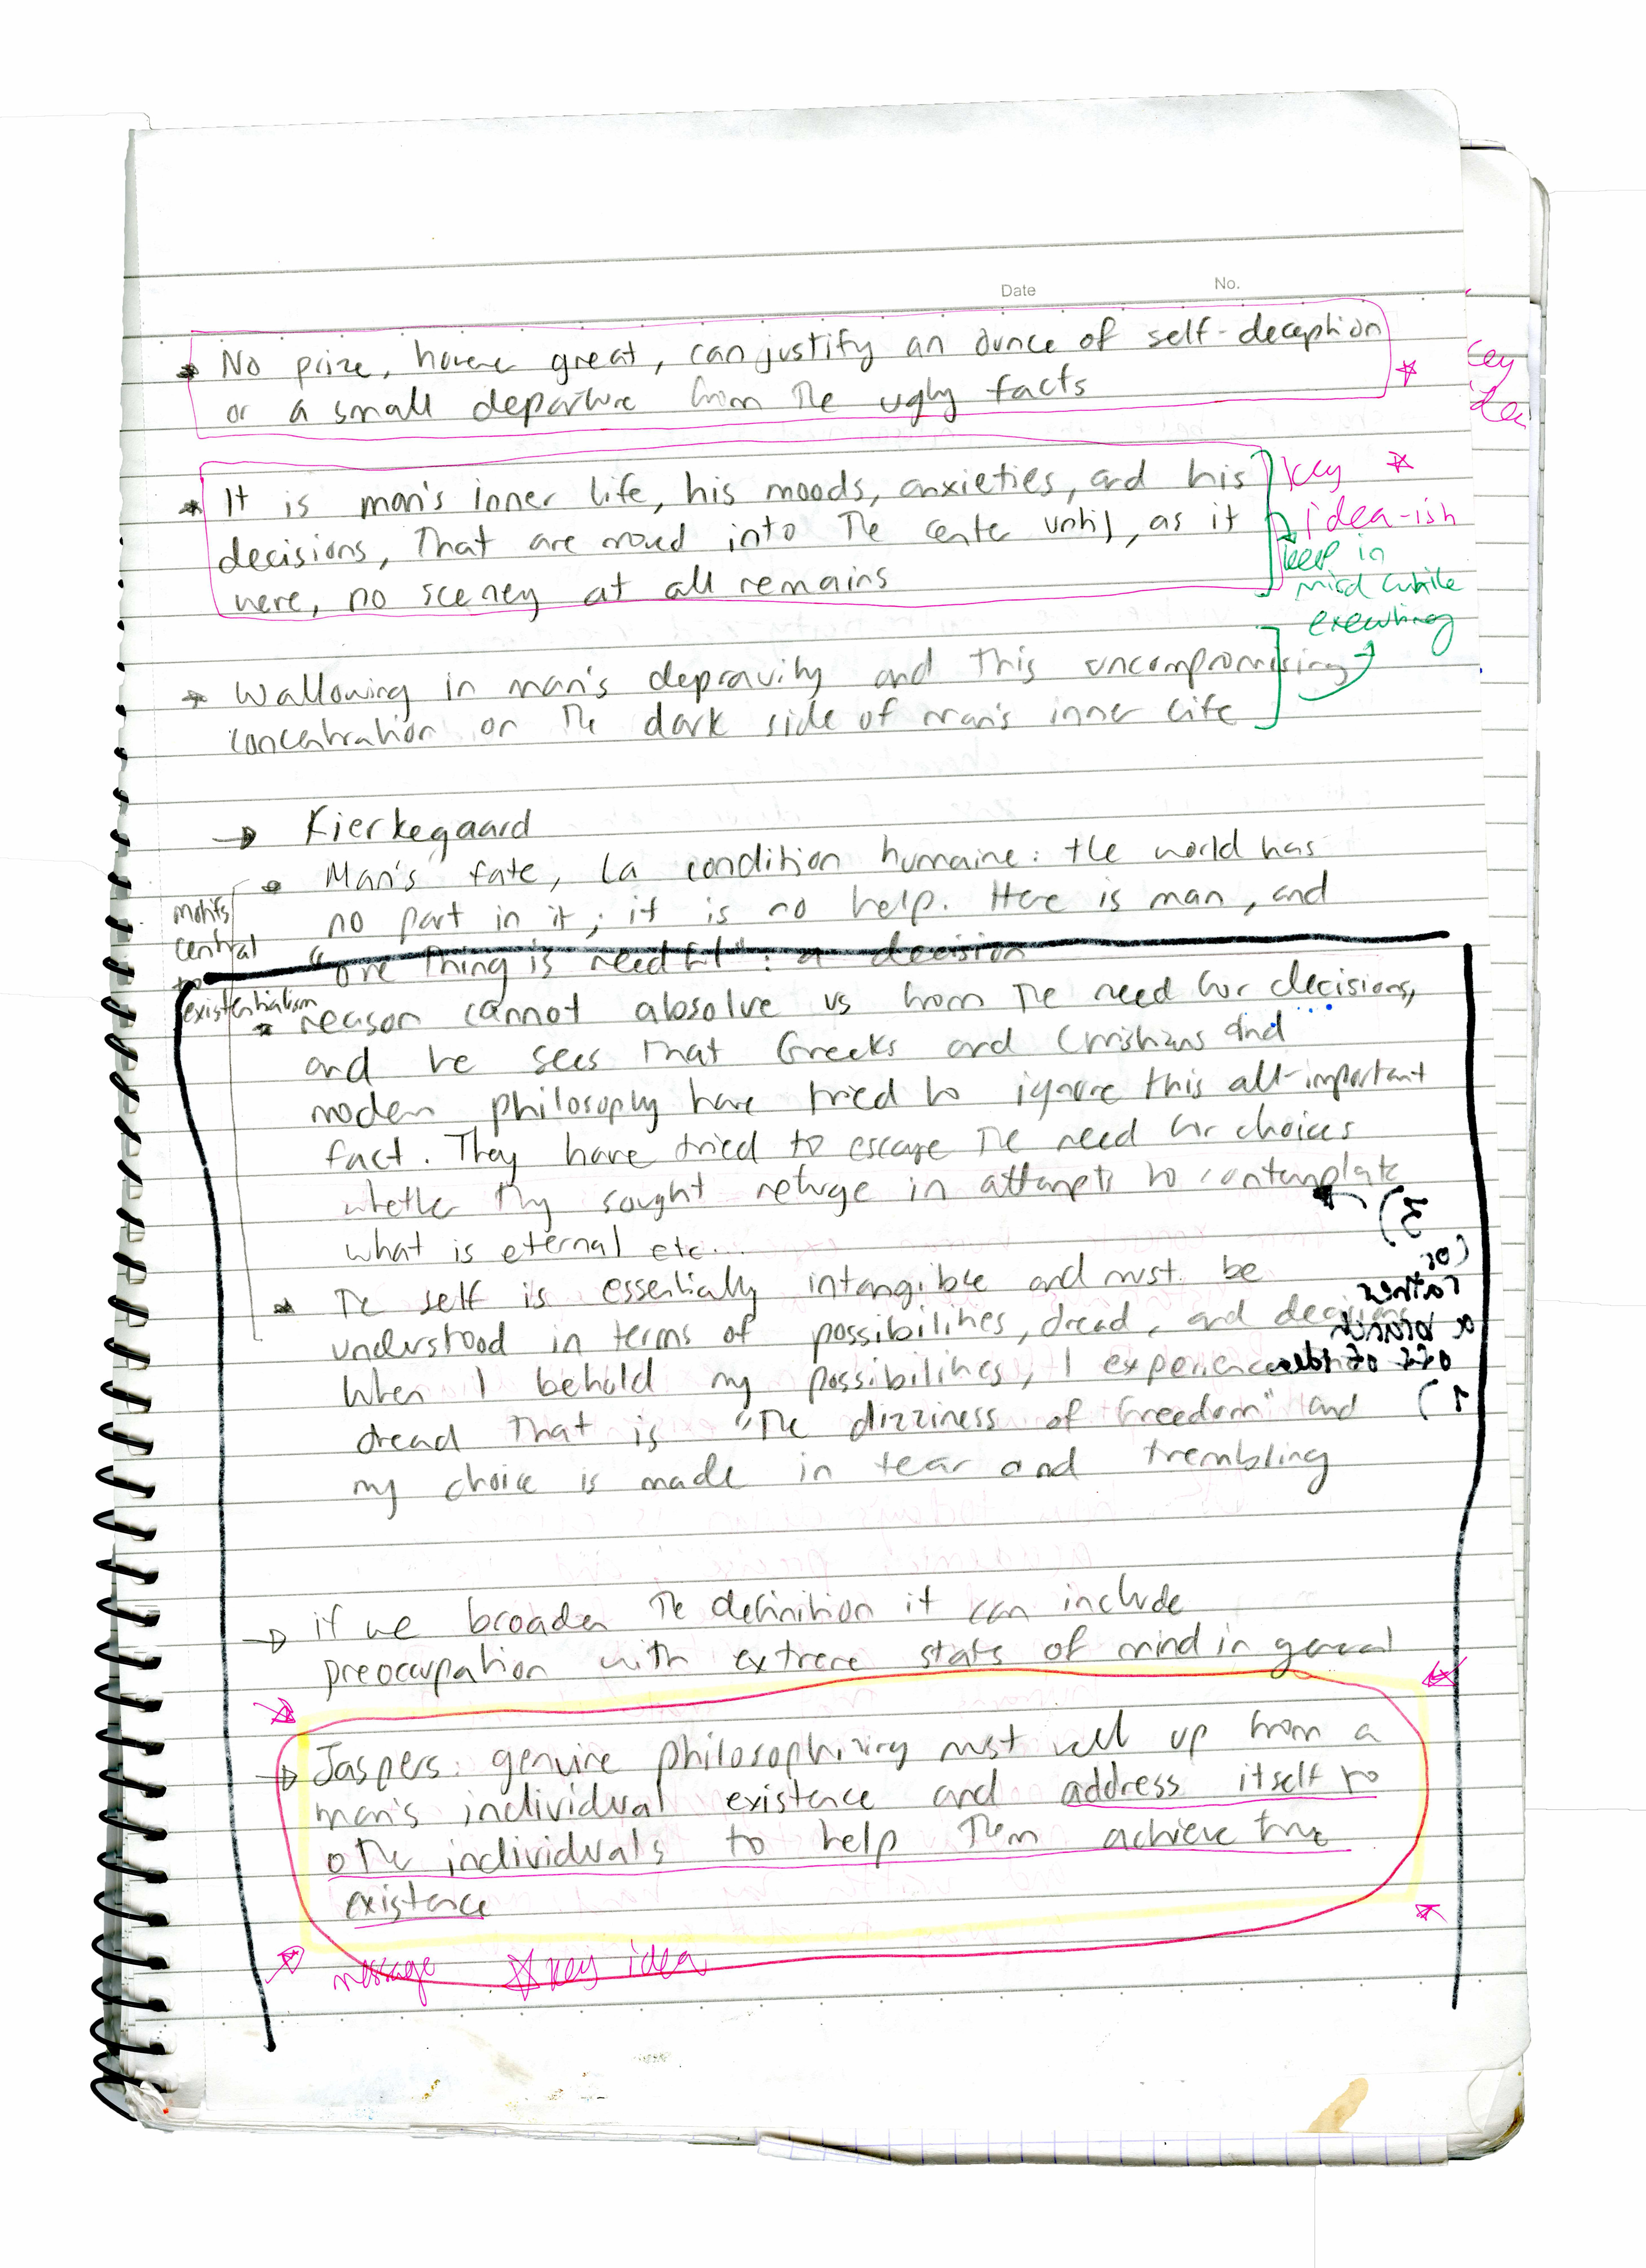 Date No.
No prize, however great, can justify an ounce of self-deception
or a small departure from the ugly facts
key
idea
It is man's inner life, his moods, anxieties, and his
decisions, that are moved into the center until, as it
were, no scenery at all remains
key
idea-ish
keep in
mind while
executing
Wallowing in man's depravity and this uncompromising
concentration on the dark side of man's inner life
→ Kierkegaard
Man's fate, la condition humaine: the world has
no part in it; it is no help. Here is man, and
"one thing is needful": a decision
motifs
central
to
existentialism
reason cannot absolve us from the need for decisions,
and he sees that Greeks and Christians and
modern philosophy have tried to ignore this all-important
fact. They have tried to escape the need for choices
whether they sought refuge in attempts to contemplate
what is eternal etc...
The self is essentially intangible and must be
understood in terms of possibilities, dread, and decisions
When I behold my possibilities, I experience
dread that is "the dizziness of freedom" and
my choice is made in fear and trembling
3)
(or
rather
a branch
off of idea
1)
→ if we broaden the definition it can include
preoccupation with extreme states of mind in general
→ Jaspers: genuine philosophizing must well up from a
man's individual existence and address itself to
other individuals to help them achieve true
existence
message key idea